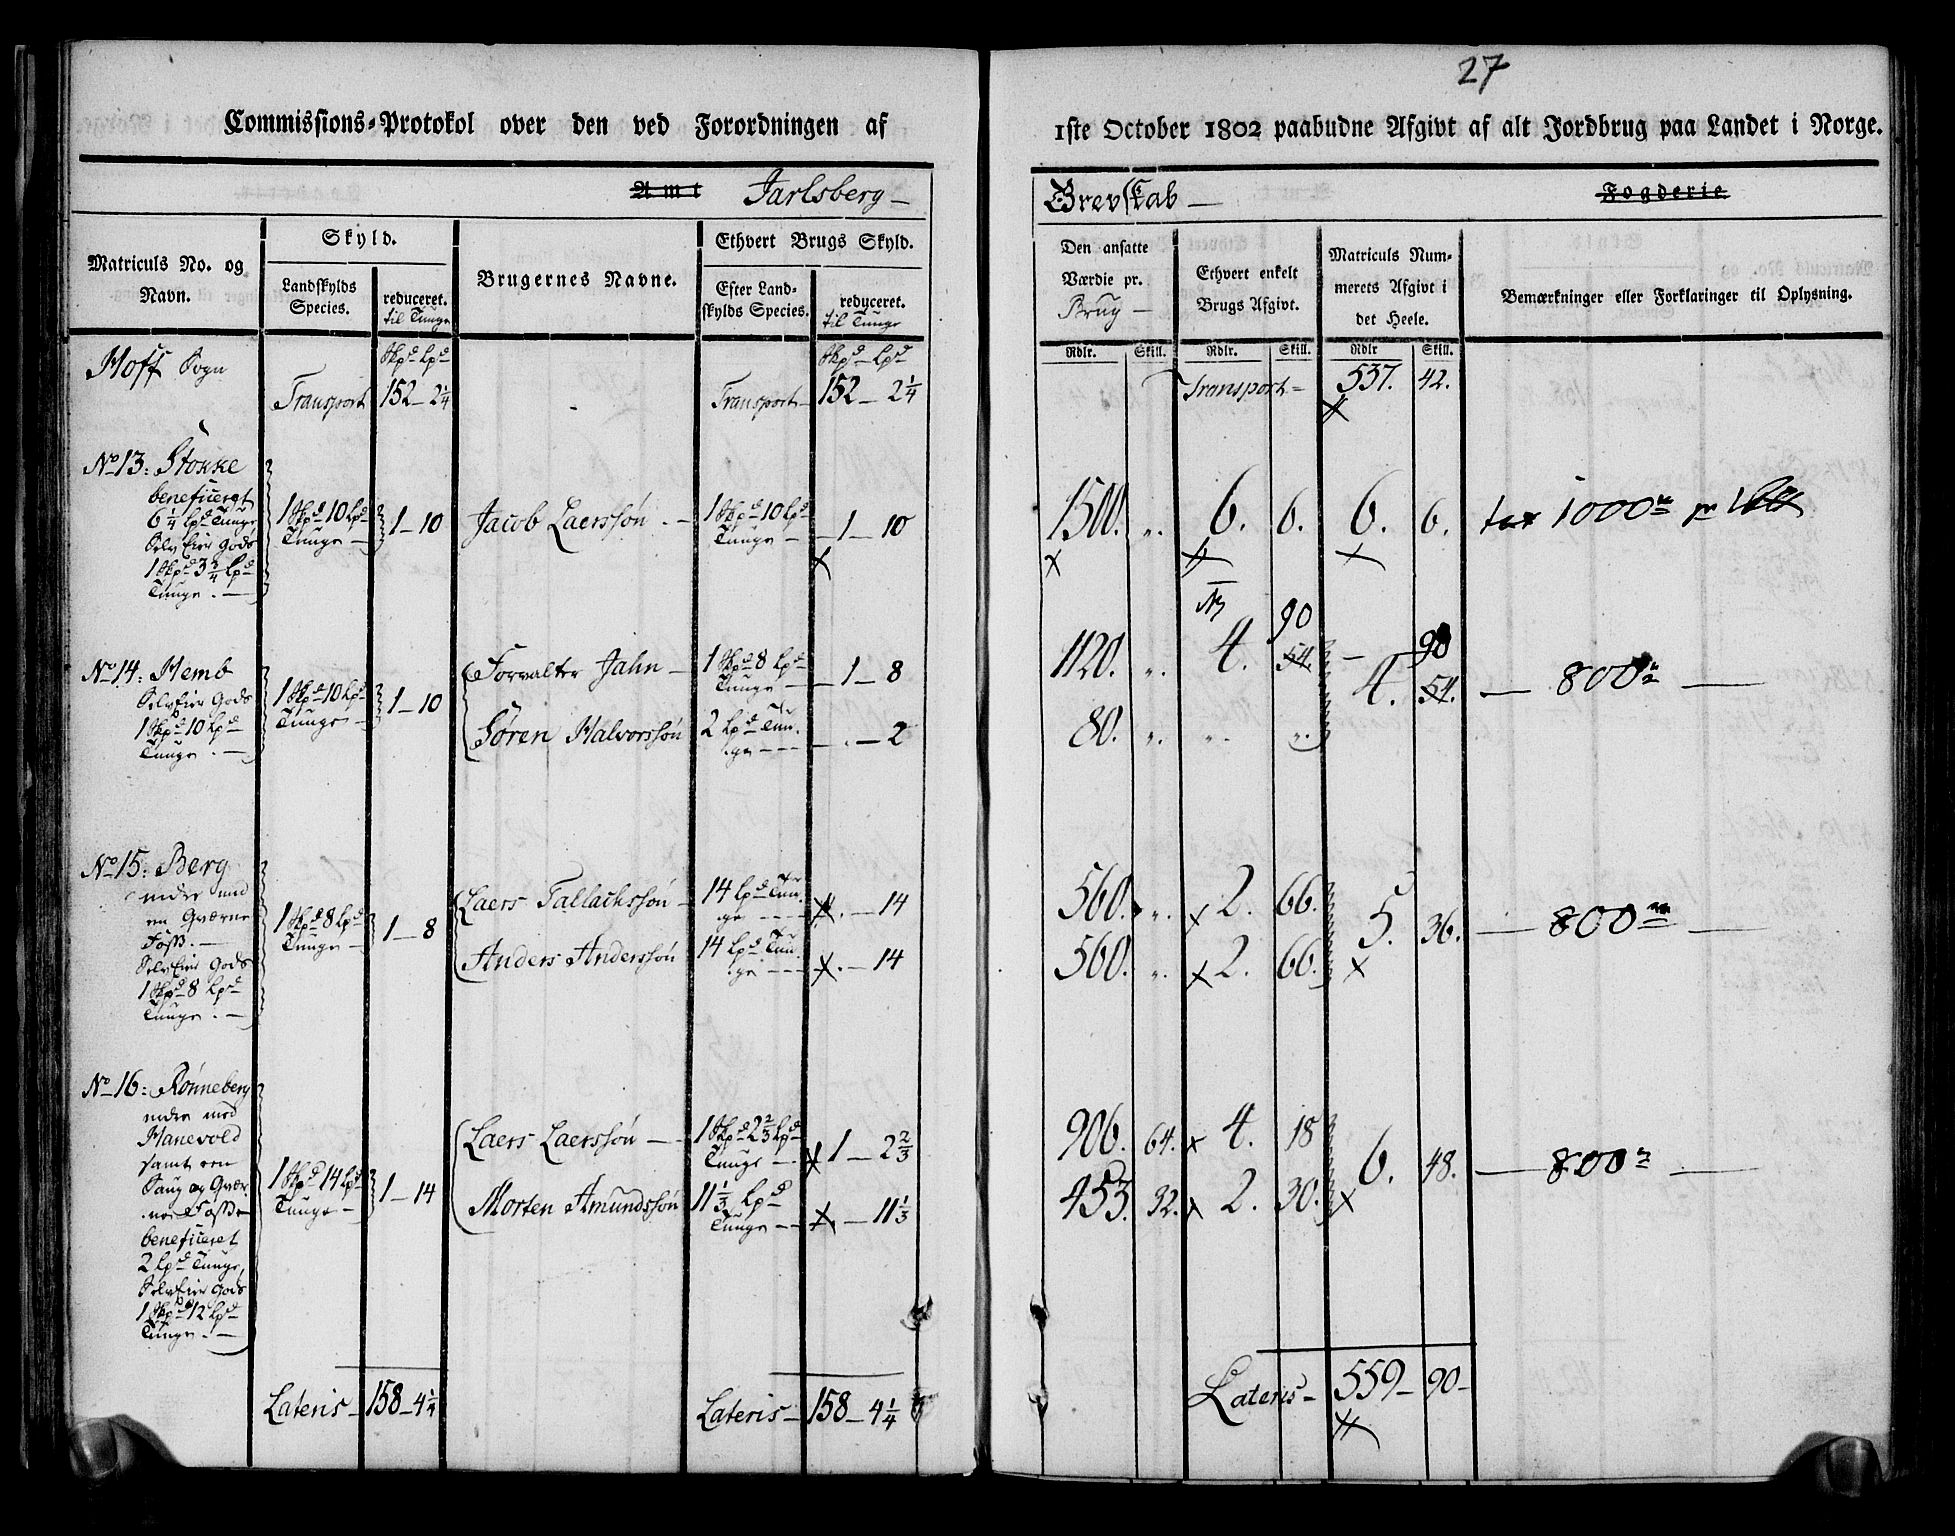 27
Commissions-Protokol over den ved Forordningen af
1ste October 1802 paabudne Afgivt af alt Jordbrug paa Landet i Norge.
Amt Jarlsberg —
Grevskab — Fogderie
Matriculs No. og Navn.
Skyld.
Landskylds Species.
reduceret. til Tunge
Brugernes Navne.
Ethvert Brugs Skyld.
Efter Landskylds Species.
reduceret. til Tunge
Den ansatte Værdie pr. Brug —
Ethvert enkelt Brugs Afgivt.
Matriculs Nummerets Afgivt i det Heele.
Bemærkninger eller Forklaringer til Oplysning.
Rdlr. Skill. Rdlr. Skill. Rdlr Skill.
Hoff Sogn
Skpd Lpd
Skpd — Lpd
Transport 152 — 2 1/4
Transport — 152 — 2 1/4
Transport — 537. 42.
No 13: Stokke
beneficeret
6 1/4 Lpd Tunge,
SelvEier Gods
1 Skpd 3 3/4 Lpd
Tunge. —
1 Skpd 10 Lpd
Tunge —
1 — 10
Jacob Laerssøn. —
1 Skpd 10 Lpd
Tunge —
1 — 10
1500. ". 6. 6. 6. 6. 1000
No 14: Hemb
SelvEier Gods
1 Skpd 10 Lpd
Tunge. —
1 Skpd 10 Lpd
Tunge —
1 — 10
Forvalter Jahn —
1 Skpd 8 Lpd
Tunge —
— 1 — 8
1120. ". 4. 90
54.
— 4. 90
54.
— 800 —
Søren Halvorssøn
2 Lpd Tun-
ge — — —
— . — 2
80. ". ". ".
No 15: Berg
nedre med
en Qværne
Foss. —
SelvEier Gods
1 Skpd 8 Lpd
Tunge. —
1 Skpd 8 Lpd
Tunge —
1 — 8
Laers Tallachssøn —
14 Lpd Tun-
ge — — —
. — 14
560. ". 2. 66.
Anders Anderssøn
14 Lpd Tun-
ge — — —
. — 14
560. ". 2. 66.
5. 36. — 800 —
No 16: Rønneberg
nedre med
Hanevold
samt een
Saug og Qvær-
ne Fosse
beneficeret
2 Lpd Tunge,
SelvEier Gods
1 Skpd 12 Lpd
Tunge. —
1 Skpd 14 Lpd
Tunge —
1 — 14
Laers Laerssøn —
1 Skpd 2 2/3 Lpd
Tunge —
1 — 2 2/3
906. 64. 4. 18
Morten Amundssøn
11 1/3 Lpd
Tunge — —
. — 11 1/3
453. 32. 2. 30.
6. 48. — 800 —
Lateris — 158 — 4 1/4
Lateris — 158 — 4 1/4
Lateris — 559 — 90 —